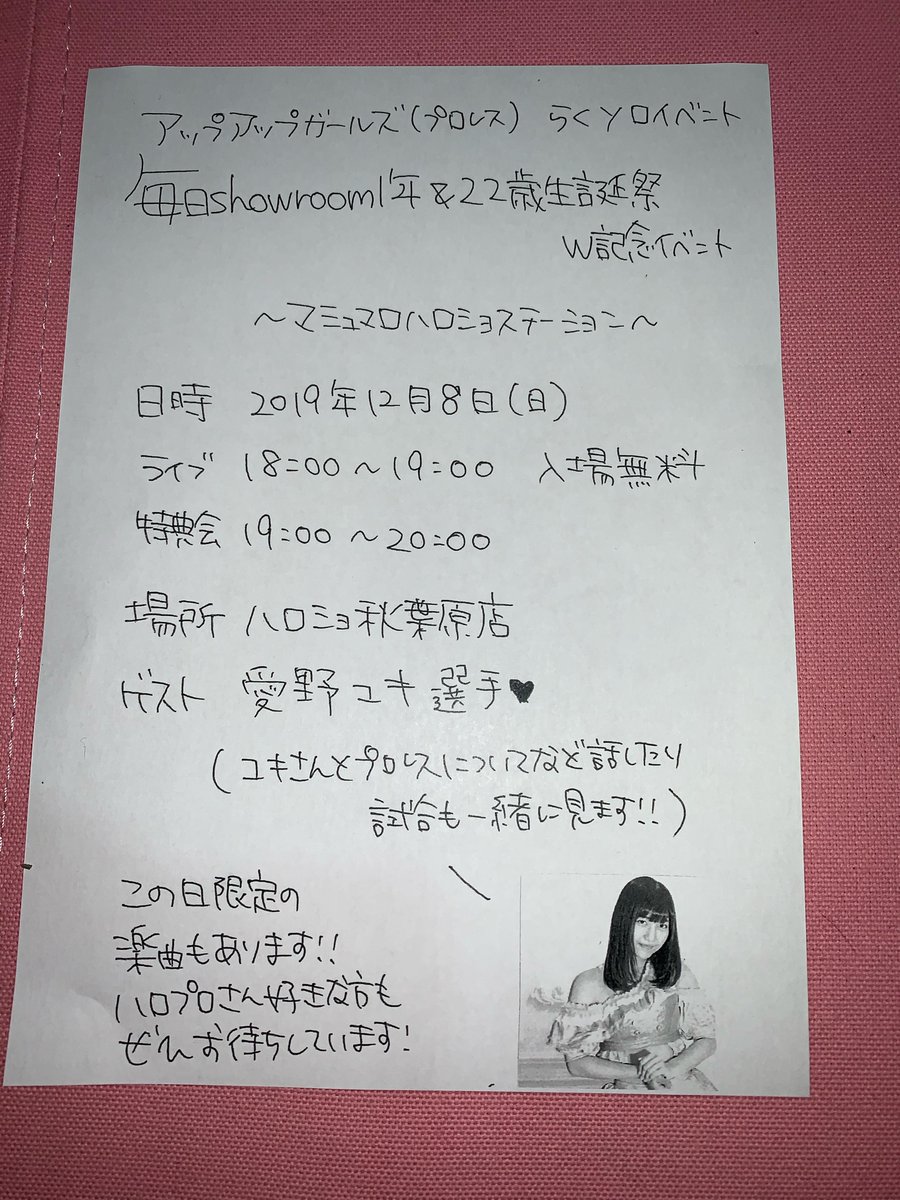 アップアップガールズ(プロレス) らくソロイベント
毎日showroom1年&22歳生誕祭
W記念イベント
~マシュマロハロショステーション~
日時 2019年12月8日(日)
ライブ 18:00~19:00 入場無料
特典会 19:00~20:00
場所 ハロショ秋葉原店
ゲスト 愛野ユキ選手♥
(ユキさんとプロレスについてなど話したり
試合も一緒に見ます!!)
この日限定の
楽曲もあります!!
ハロプロさん好きな方も
ぜひお待ちしています!